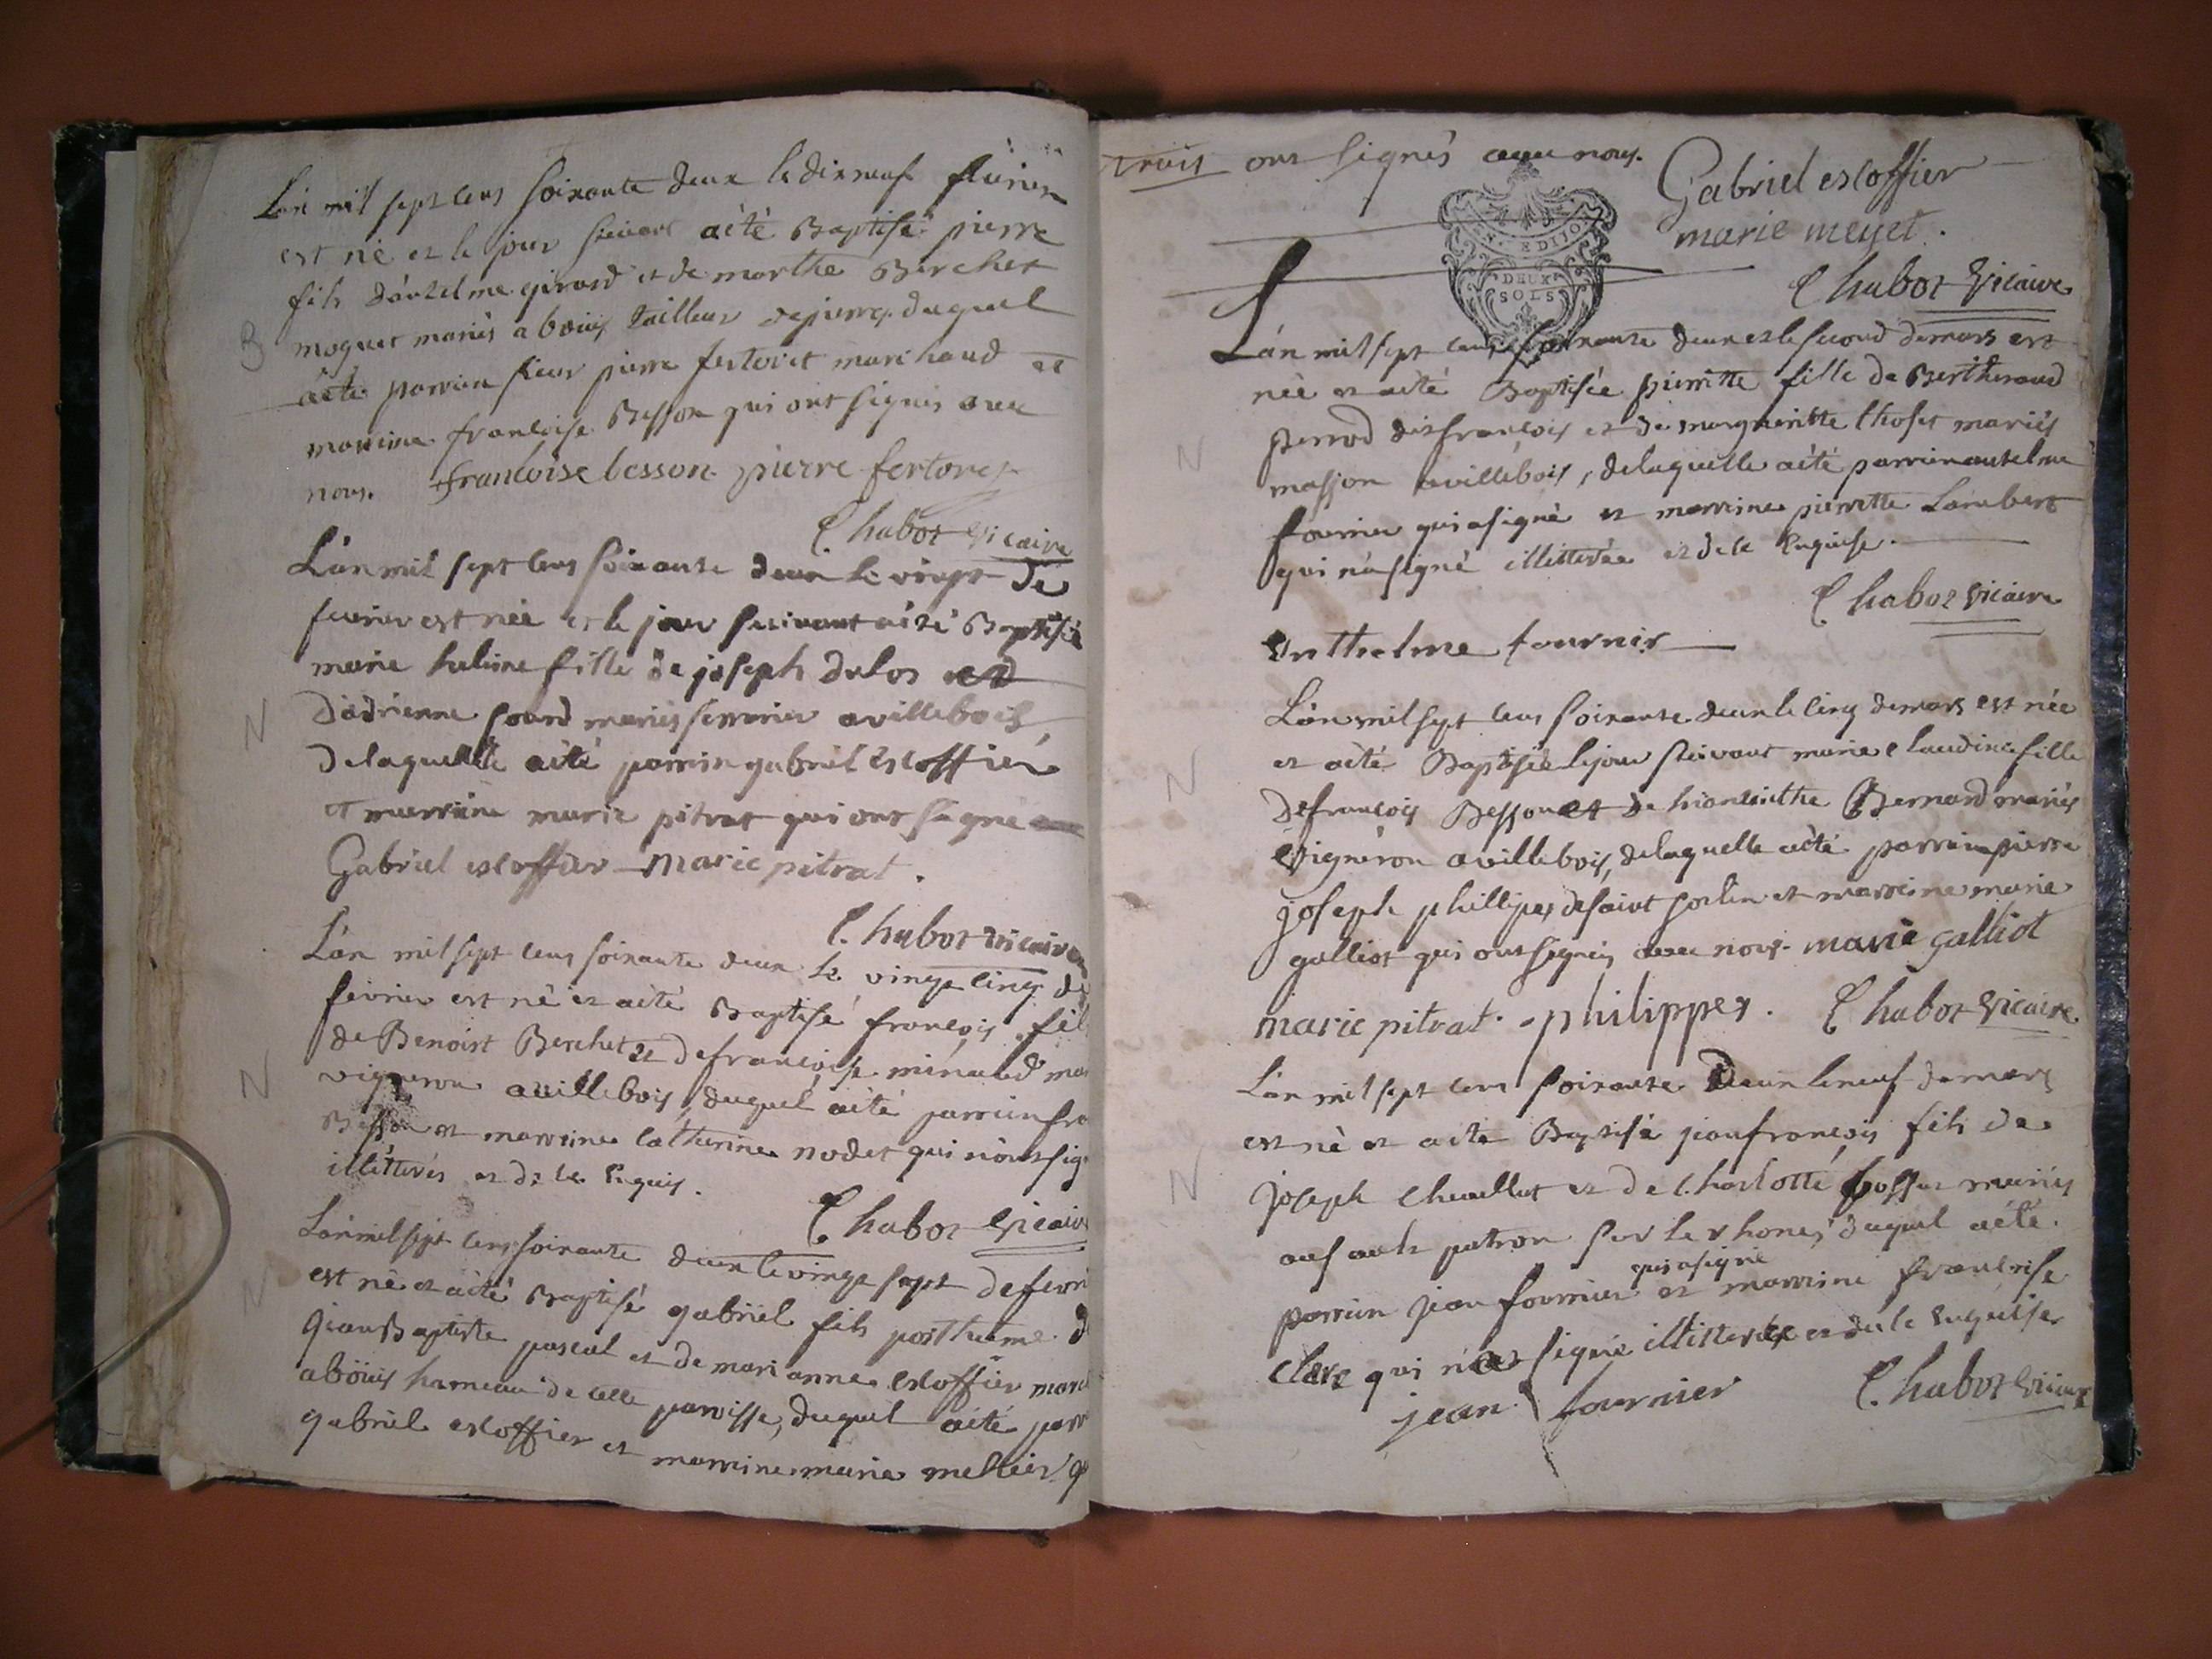 L'an mil sept cens soixante deux le dix neuf février
est né et le jour suivant a été Baptisé pierre
fils d'antelme girard et de marthe Berchet
moguet mariés a bouis tailleur de pierre, duquel
a été parrain sieur pierre fertoret marchand et
marrine francoise Besson qui ont signés avec
nous. francoise besson pierre fertoret
Chabot vicaire
L'an mil sept cens soixante deux le vingt de
fevrier est née et le jour suivant a été Baptisée
marie heleine fille de joseph delos et
d'adrienne sourd mariés serrurier a villebois,
de laquelle a été parrin gabriel escoffier
et marrine marie pitrat qui ont signé
Gabriel escoffier marie pitrat.
Chabot vicaire
L'an mil sept cens soixante deux le vingt cinq de
fevrier est né et a été Baptisé françois fil
de Benoist Berchet et de françoise minaud ma
vigneron a villebois, duquel a été parrin fra
Besson et marrine Catherine nodet qui n'ont sig
illitterés et de ce Enquis.
Chabot vicaire
L'an mil sept cens soixante deux le vingt sept de fevri
est né et a été Baptisé gabriel fils posthume d
jean Baptiste pascal et de marianne escoffier mari
a boüis hameau de cette parroisse, duquel a été parr
gabriel escoffier et marrine marie mettier q
ont signés avec nous.
Gabriel escoffier
marie meyet.
EN. EDIJO
DEUX
SOLS
Chabot vicaire
L'an mil sept cens soixante deux et le second de mars est
née et a été Baptisée pierrette fille de Bertheraud
perrod dit françois et de margueritte Choset mariés
masson a villebois, de laquelle a été parrin antelme
fournier qui a signé et marrine pierrette Lambert
qui n'a signé illitterée et de ce Enquise.
Chabot vicaire
Anthelme fournir
L'an mil sept cens soixante deux le cinq de mars est née
et a été Baptisée le jour suivant marie claudine fille
de françois Besson et de hiancinthe Bernard mariés
vigneron a villebois, de laquelle a été parrin pierre
joseph phillipes de saint sorlin et marrine marie
galliot qui ont signés avec nous. marie galliot
marie pitrat. philippes. Chabot vicaire.
L'an mil sept cens soixante Deux le neuf de mars
est né et a été Baptisé jean françois fils de
joseph Chevillut et de Charlotte bosset mariés
au sault patron sur le rhone, duquel a été
qui a signé
parrin jean fournier et marrine francoise
clerc qui n'a signé illitterée et de ce Enquise
jean fournier
Chabot vicaire